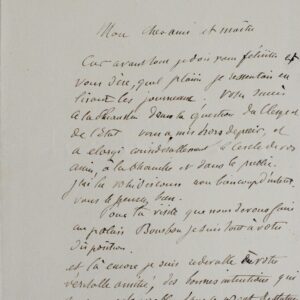 Mon cher ami et maître
Car avant tout je dois vous féliciter et
vous dire, quel plaisir je ressentais en
lisant les journaux votre succès
à la chambre dans la question du Clergé et
de l'Etat vous a mis hors de pair, et
a élargi considérablement le cercle de vos
amis, à la chambre et dans le public.
J'ai lu votre discours non beaucoup d'intérêt
vous le pensez bien.
Pour la visite que nous devons faire
au palais Bourbon je suis tout à votre
disposition.
et là encore je suis redevable à votre
véritable amitié, des bonnes intentions qui